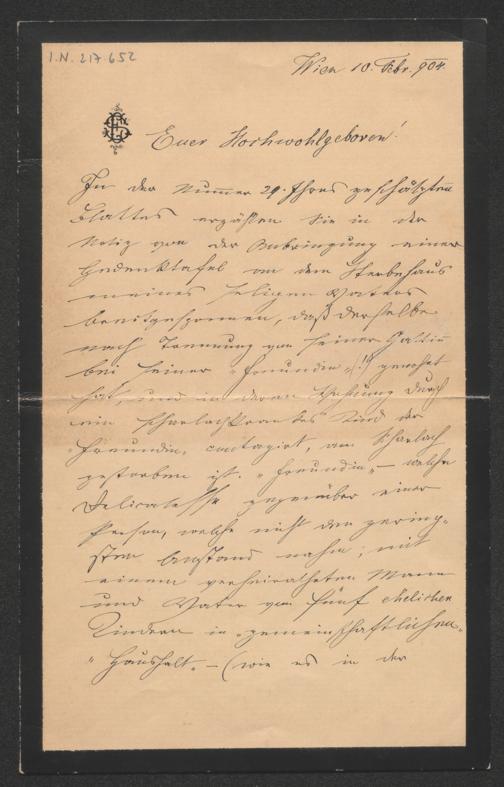 I.N. 217.652
Wien 10. Febr. 904.
Euer Hochwohlgeboren!
In der Nummer 29. Ihres geschätzten
Blattes erzählen Sie in der
Notiz von der Anbringung einer
Gedenktafel an dem Sterbehaus
meines seligen Vaters
, daß derselbe
nach Trennung von seiner Gattin
bei seiner „Freundin" (!) gewohnt
hat und in deren Wohnung durch
ein scharlachkrankes Kind der
„Freundin" am Scharlach
gestorben ist. „Freundin" – welche
Delicatesse gegenüber einer
Person, welche nicht den gering-
sten Anstand nahm, mit
einem verheiratheten Mann
und Vater von fünf ehelichen
Kindern in „gemeinschaftlichem
Haushalt" – (wie es in der